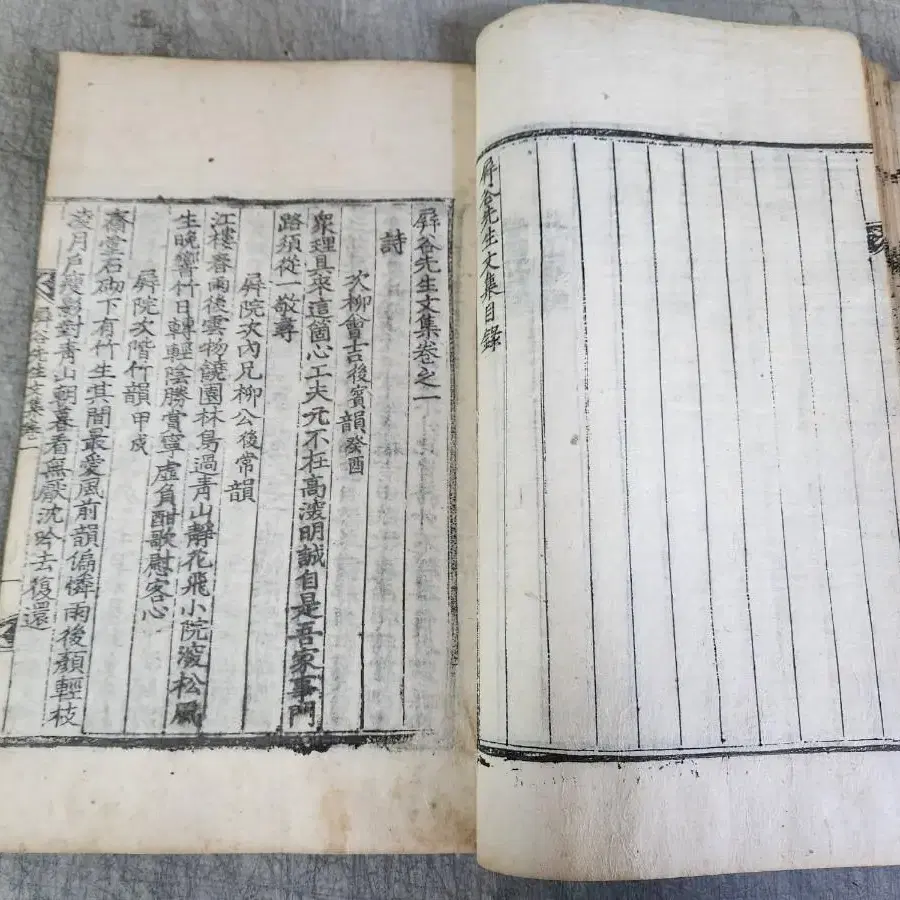 屛谷先生文集目錄
屛谷先生文集卷之一
詩
次柳會吉後賓韻癸酉
衆理具來這箇心工夫元不在高深明誠自是吾家事門
路須從一敬尋
屛院次內兄柳公後常韻
江樓春雨後雲物繞園林鳥過靑山靜花飛小院深松風
生晩響竹日轉輕陰勝賞寧虛負酣歌慰客心
屛院次階竹韻甲戌
齋堂石砌下有竹生其間最愛風前韻偏憐雨後顔輕枝
凌月戶瘦影對靑山朝暮看無厭沈吟去復還
屛谷先生文集卷一